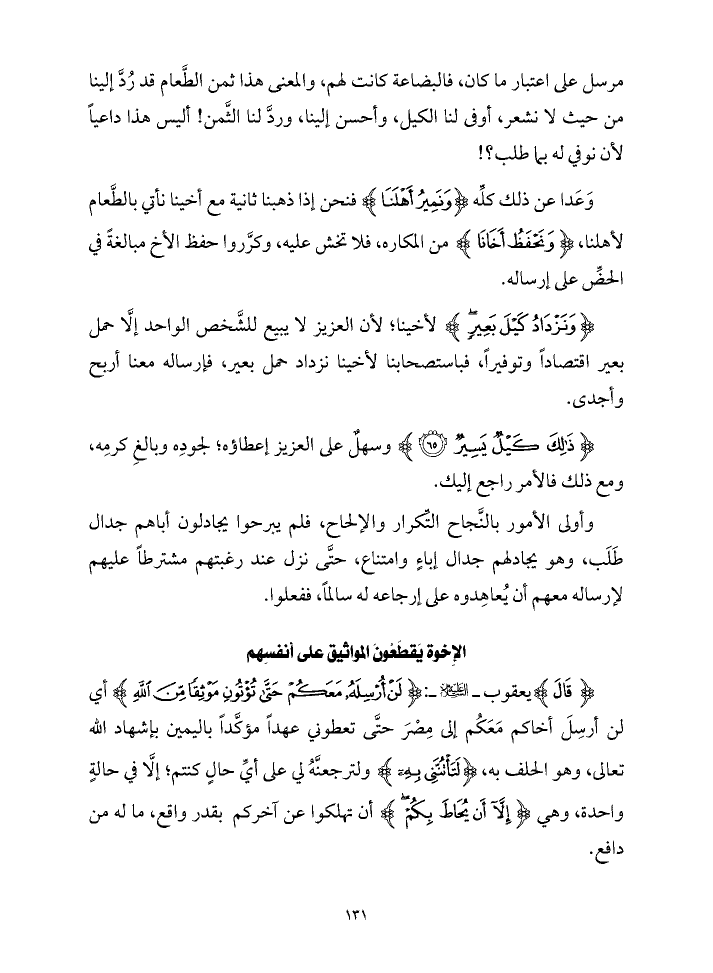 مرسل على اعتبار ما كان، فالبضاعة كانت لهم، والمعنى هذا ثمن الطَّعام قد رُدَّ إلينا
من حيث لا نشعر، أوفى لنا الكيل، وأحسن إلينا، وردَّ لنا الثَّمن! أليس هذا داعياً
لأن نوفي له بما طلب؟!
وَعَدا عن ذلك كلِّه ﴿وَنَمِيرُ أَهْلَنَا﴾ فنحن إذا ذهبنا ثانية مع أخينا نأتي بالطَّعام
لأهلنا، ﴿وَنَحْفَظُ أَخَانَا﴾ من المكاره، فلا تخش عليه، وكرَّروا حفظ الأخ مبالغةً في
الحضِّ على إرساله.
﴿وَنَزْدَادُ كَيْلَ بَعِيرٍ ۖ﴾ لأخينا؛ لأن العزيز لا يبيع للشَّخص الواحد إلَّا حمل
بعير اقتصاداً وتوفيراً، فباستصحابنا لأخينا نزداد حمل بعير، فإرساله معنا أربح
وأجدى.
﴿ذَٰلِكَ كَيْلٌ يَسِيرٌ ٦٥﴾ وسهلٌ على العزيز إعطاؤه؛ لجودِه وبالغِ كرمِه،
ومع ذلك فالأمر راجع إليك.
وأولى الأمور بالنَّجاح التِّكرار والإلحاح، فلم يبرحوا يجادلون أباهم جدال
طَلَب، وهو يجادلهم جدال إباءٍ وامتناع، حتَّى نزل عند رغبتهم مشترطاً عليهم
لإرساله معهم أن يُعاهِدوه على إرجاعه له سالماً، ففعلوا.
الإخوة يَقطَعُونَ المواثيق على أنفسِهم
﴿قَالَ﴾ يعقوب ـ عليه السلام ـ: ﴿لَنْ أُرْسِلَهُۥ مَعَكُمْ حَتَّىٰ تُؤْتُونِ مَوْثِقًا مِّنَ ٱللَّهِ﴾ أي
لن أرسِلَ أخاكم مَعَكُم إلى مِصْرَ حتَّى تعطوني عهداً مؤكَّداً باليمين بإشهاد الله
تعالى، وهو الحلف به، ﴿لَتَأْتُنَّنِى بِهِۦٓ﴾ ولترجعنَّهُ لي على أيِّ حالٍ كنتم؛ إلَّا في حالةٍ
واحدة، وهي ﴿إِلَّآ أَن يُحَاطَ بِكُمْ ۖ﴾ أن تهلكوا عن آخركم بقدر واقع، ما له من
دافع.
١٣١